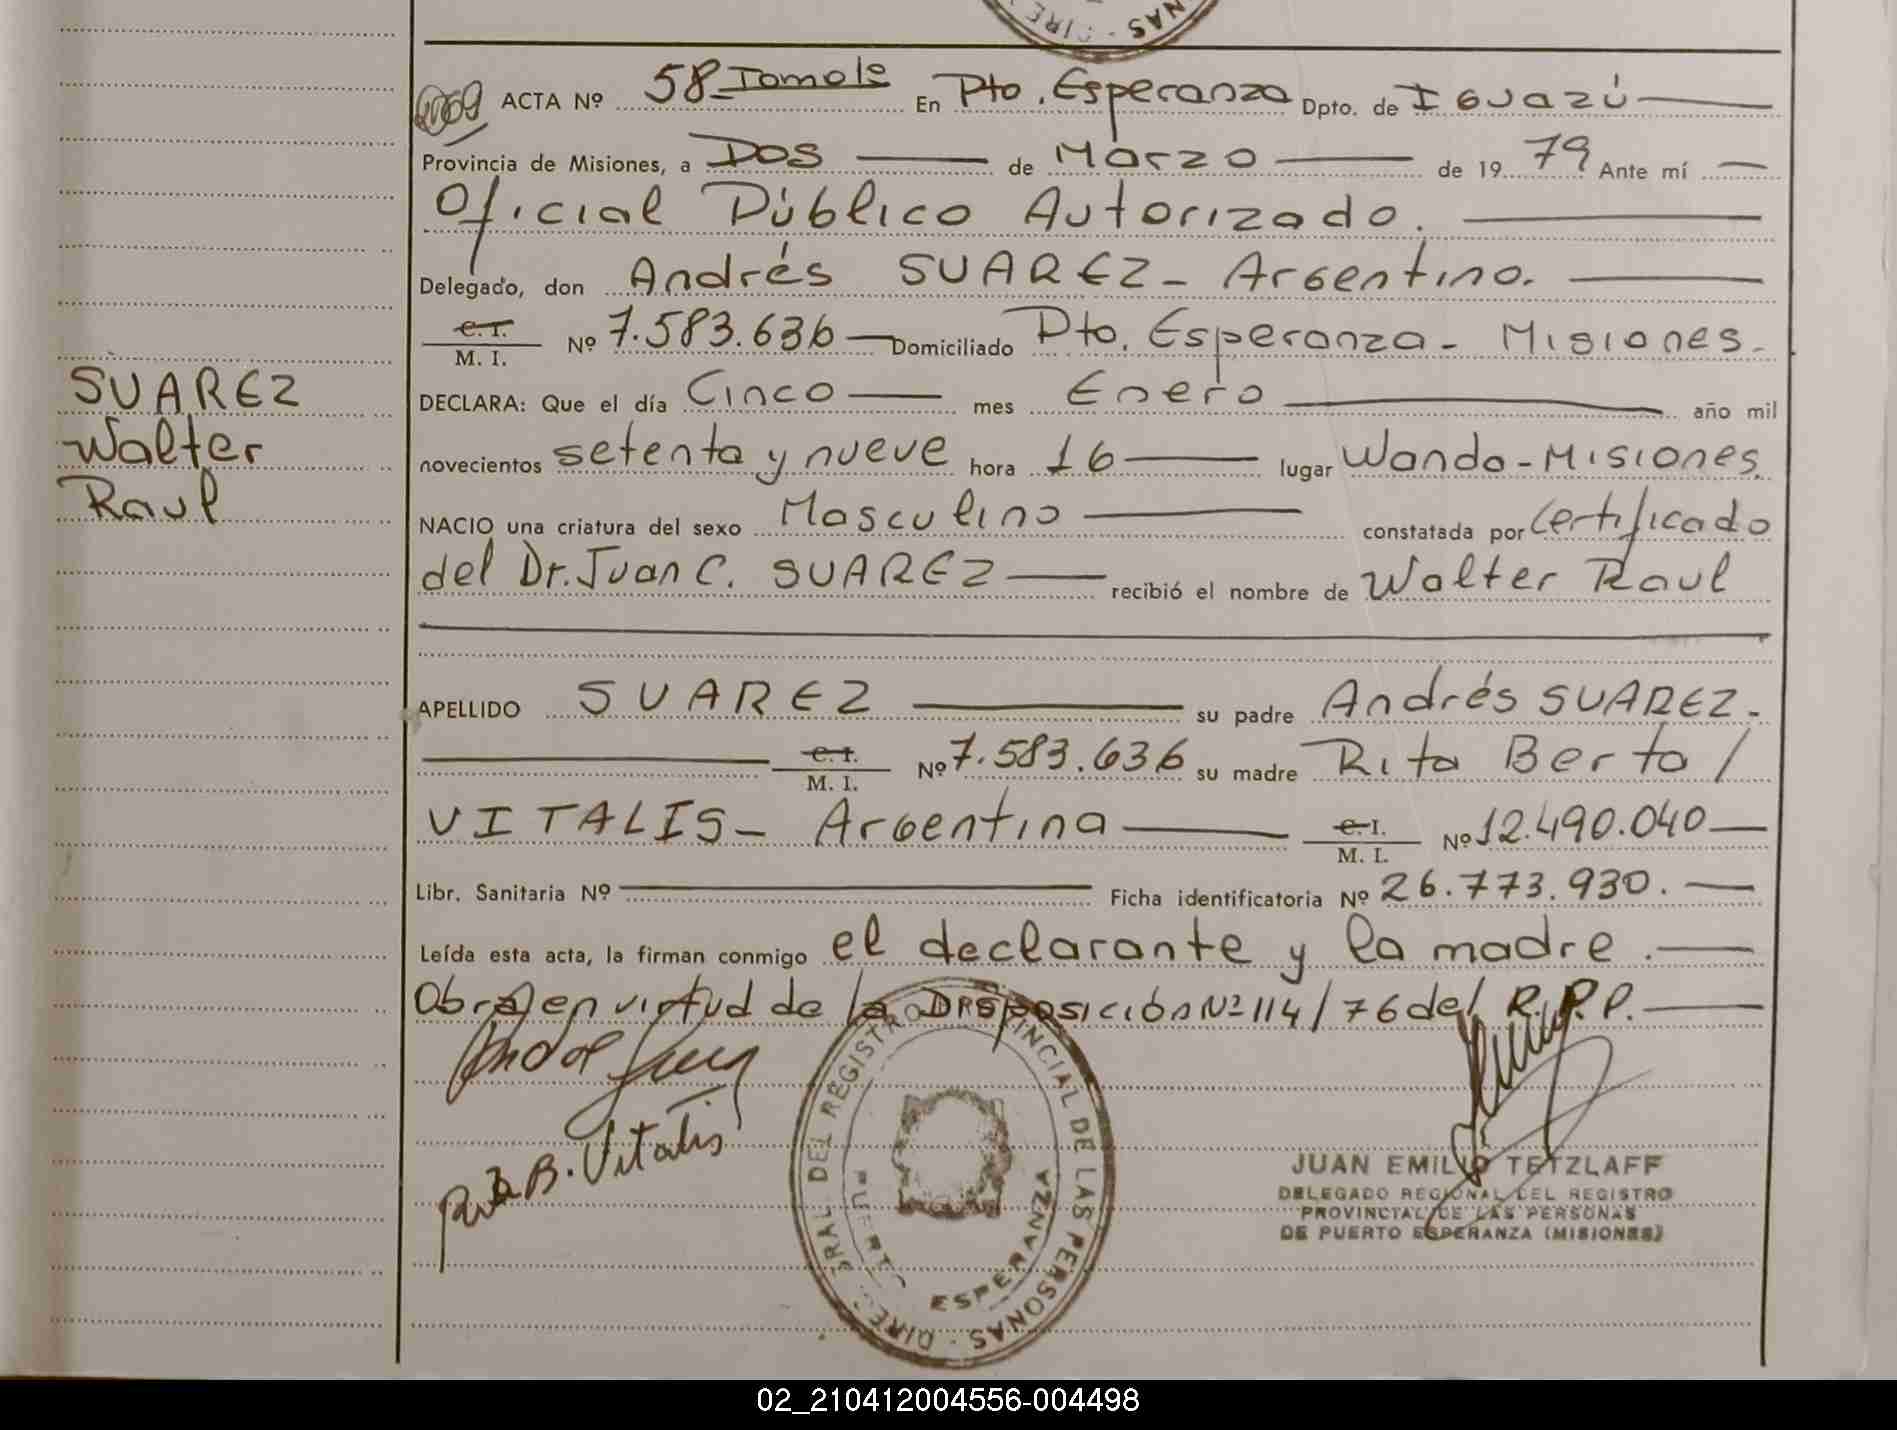 ACTA Nº 58 Tomo 1º En Pto. Esperanza Dpto. de Iguazú
Provincia de Misiones, a Dos de Marzo de 1979 Ante mí
Oficial Público Autorizado.
Delegado, don Andrés SUAREZ - Argentino.
C. I.
M. I. Nº 7.583.636 Domiciliado Pto. Esperanza - Misiones.
SUAREZ
Walter
Raul
DECLARA: Que el día Cinco mes Enero año mil
novecientos setenta y nueve hora 16 lugar Wanda - Misiones.
NACIO una criatura del sexo Masculino constatada por Certificado
del Dr. Juan C. SUAREZ recibió el nombre de Walter Raul
APELLIDO SUAREZ su padre Andrés SUAREZ.
C. I.
M. I. Nº 7.583.636 su madre Rita Berta /
VITALIS - Argentina C. I.
M. I. Nº 12.490.040
Libr. Sanitaria Nº Ficha identificatoria Nº 26.773.930.
Leída esta acta, la firman conmigo el declarante y la madre.
Obra en virtud de la Disposición Nº 114/76 del R.P.P.
Rita B. Vitalis
DEL REGISTRO PROVINCIAL DE LAS PERSONAS
PUERTO ESPERANZA
JUAN EMILIO TETZLAFF
DELEGADO REGIONAL DEL REGISTRO
PROVINCIAL DE LAS PERSONAS
DE PUERTO ESPERANZA (MISIONES)
02_210412004556-004498